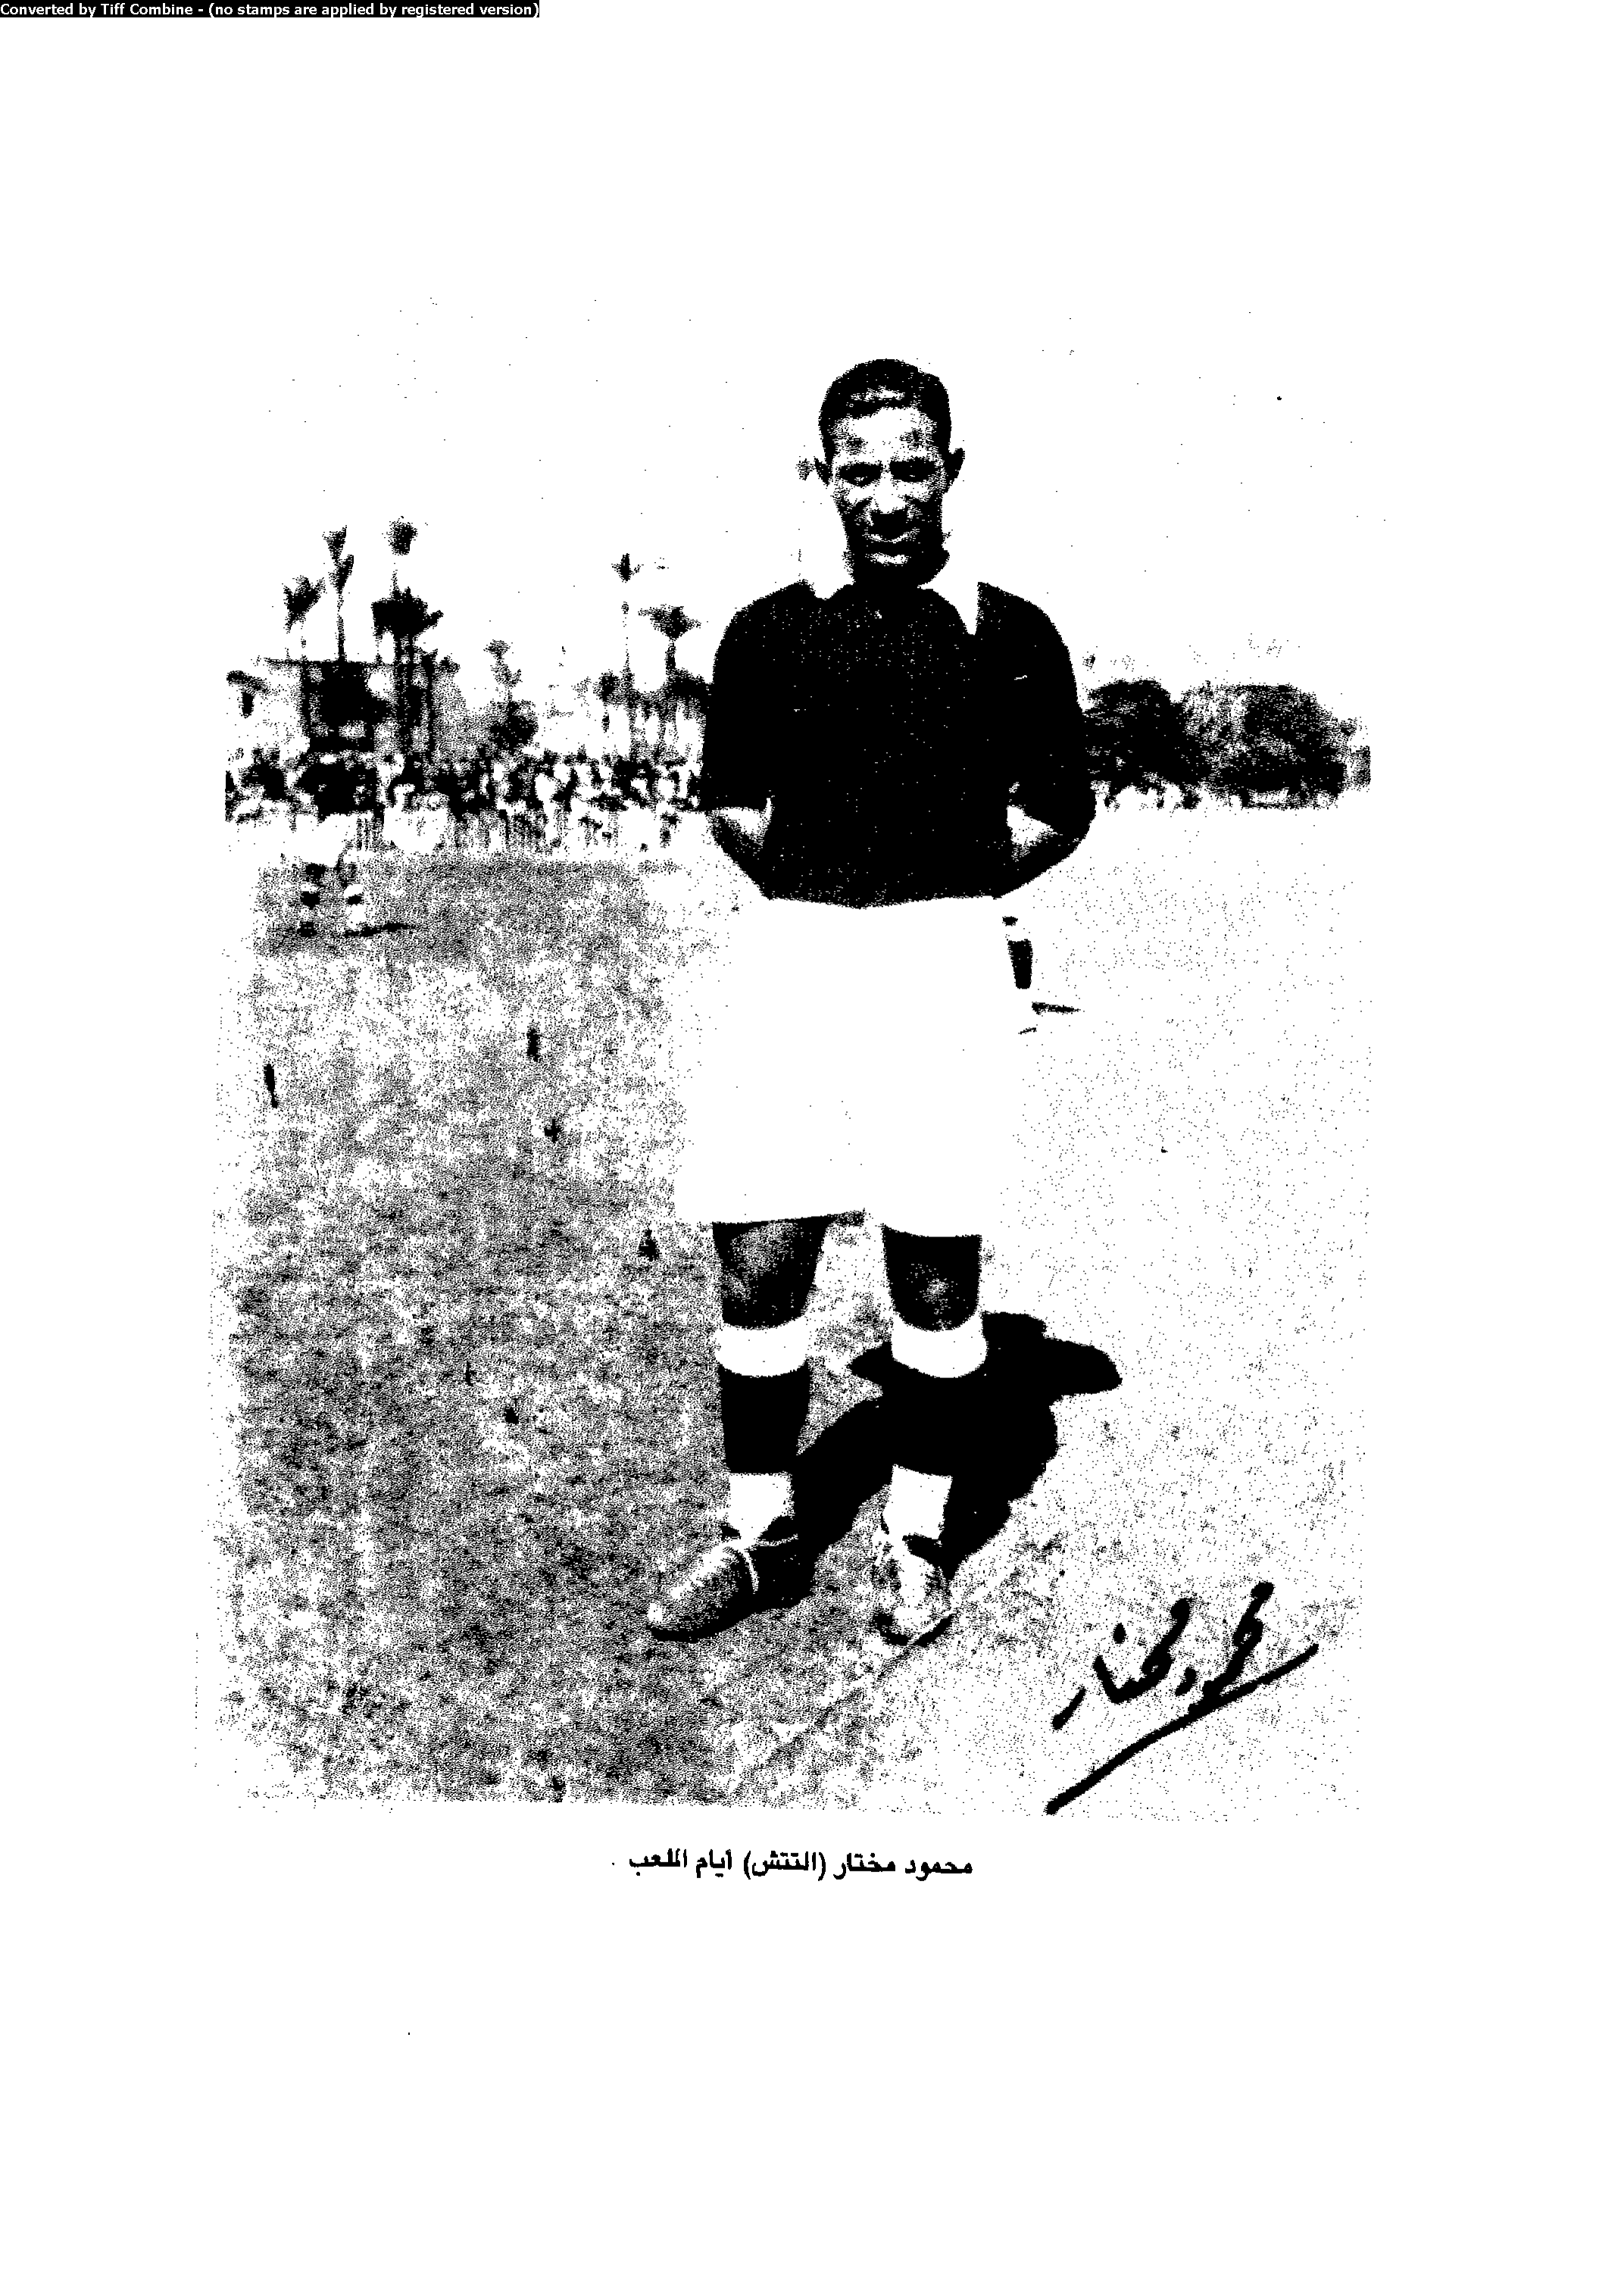 Converted by Tiff Combine - (no stamps are applied by registered version)
محمود مختار
محمود مختار (التتش) أيام الملعب